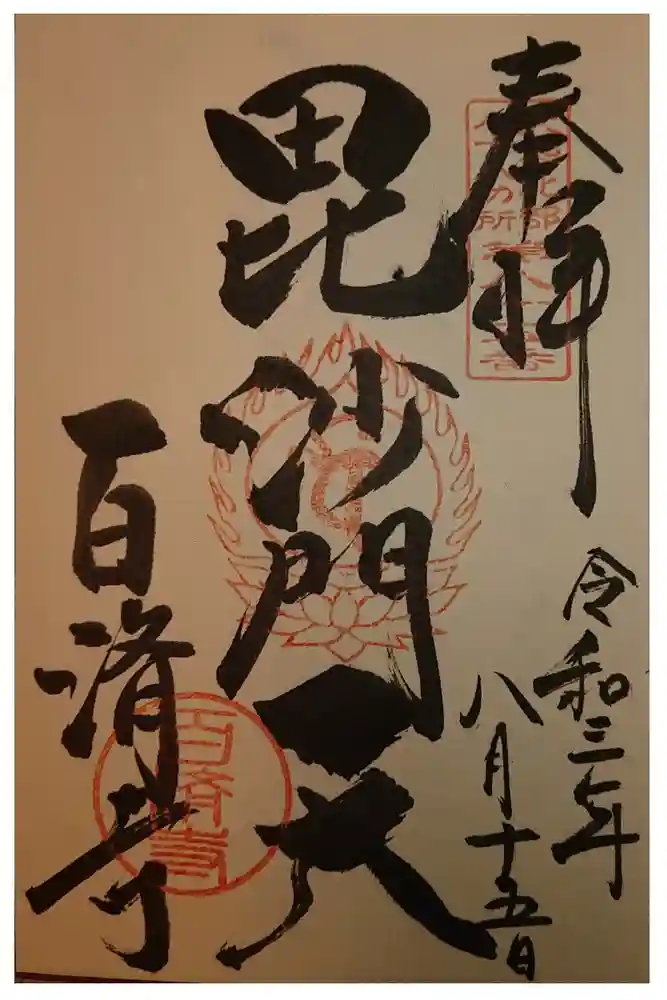 奉拝
令和三年
八月十五日
毘沙門天
百済寺
百済寺